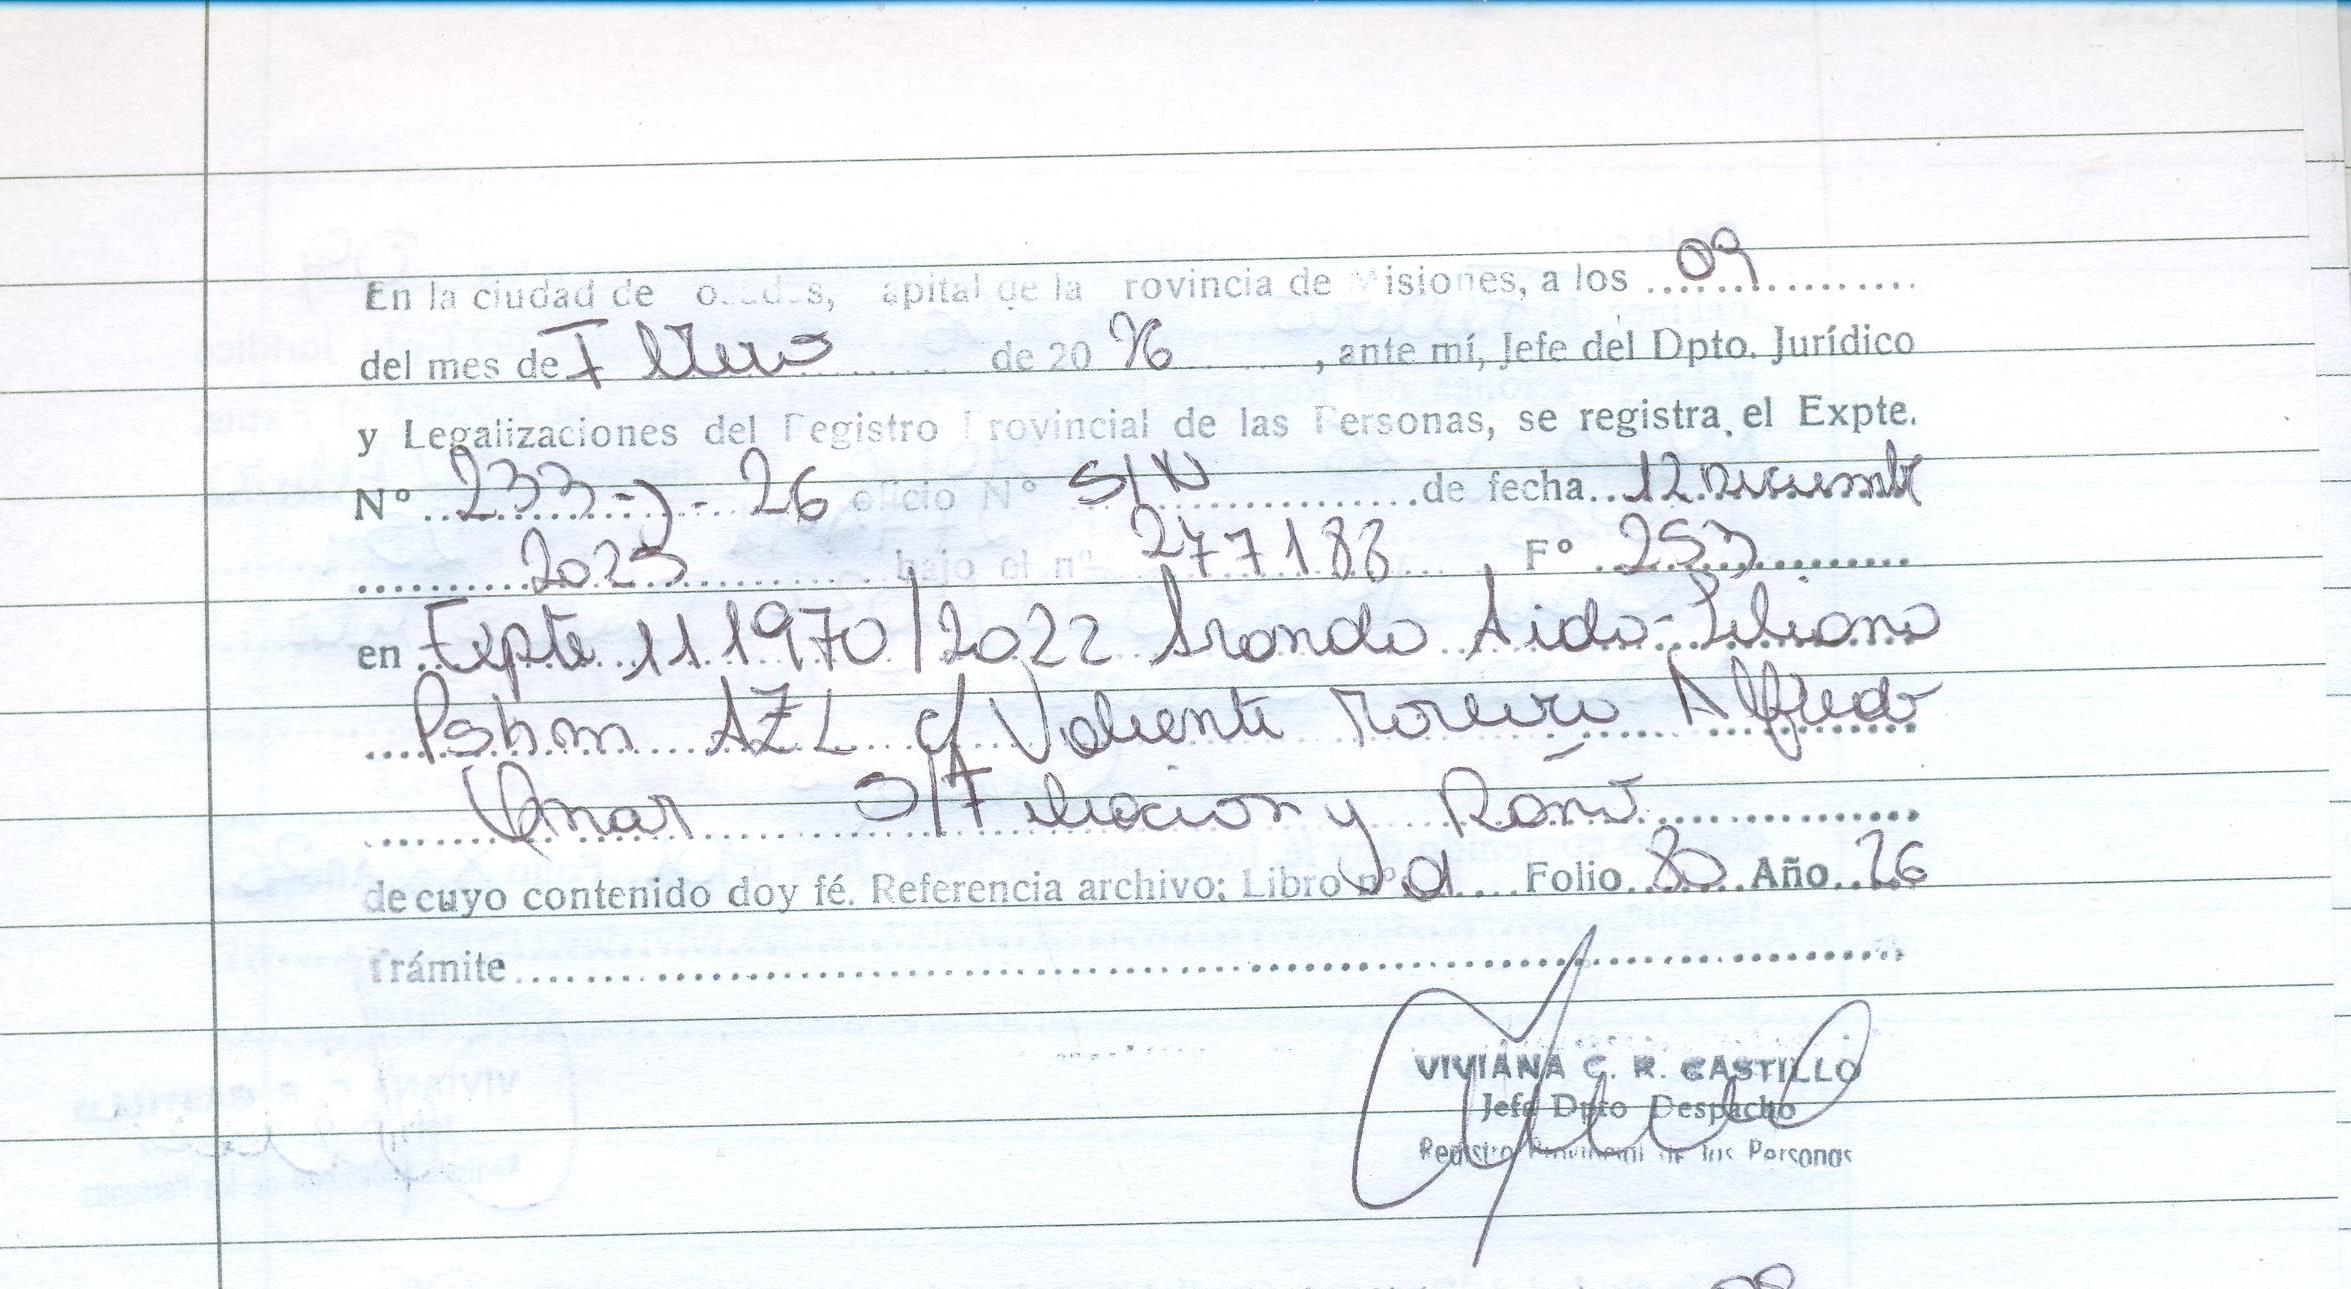 En la ciudad de Posadas, Capital de la Provincia de Misiones, a los 09
del mes de Febrero de 20 26, ante mí, Jefe del Dpto. Jurídico
y Legalizaciones del Registro Provincial de las Personas, se registra el Expte.
N° 233-J-26 oficio N° S/N de fecha 12 Diciembre
2025 bajo el n° 277188 F° 253
en Expte 111970/2022 Aranda Aida Liliana
Pshm AZL c/ Valiente Moreira Alfredo
Omar S/Filiacion y
de cuyo contenido doy fé. Referencia archivo: Libro n° Folio 80 Año 26
Trámite
VIVIANA C. R. CASTILLO
Jefe Dpto Despacho
Registro Provincial de las Personas